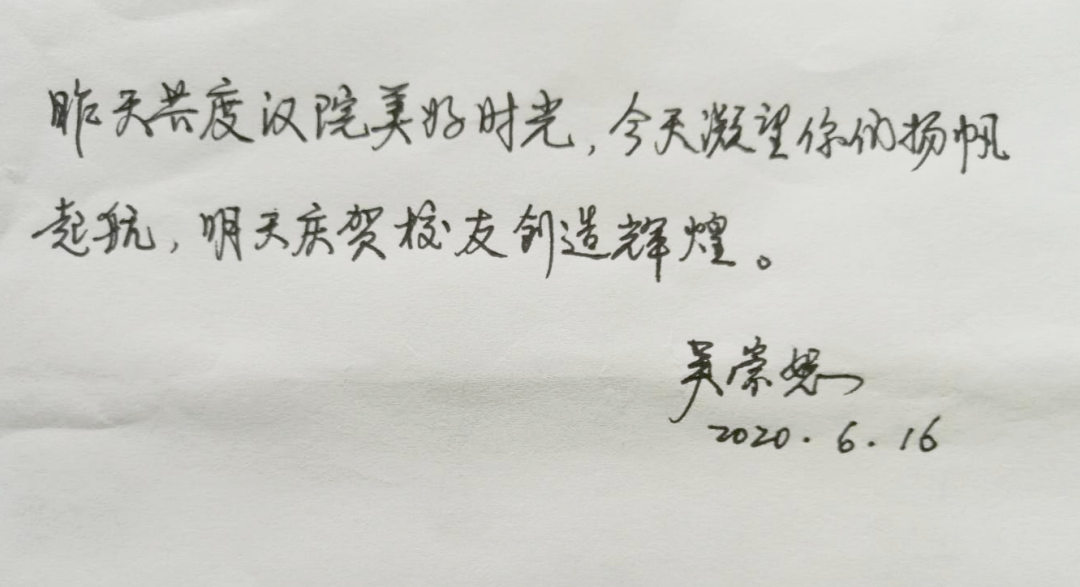 昨天共度汉院美好时光,今天凝望你们扬帆
起航,明天庆贺校友创造辉煌。
吴崇恕
2020.6.16